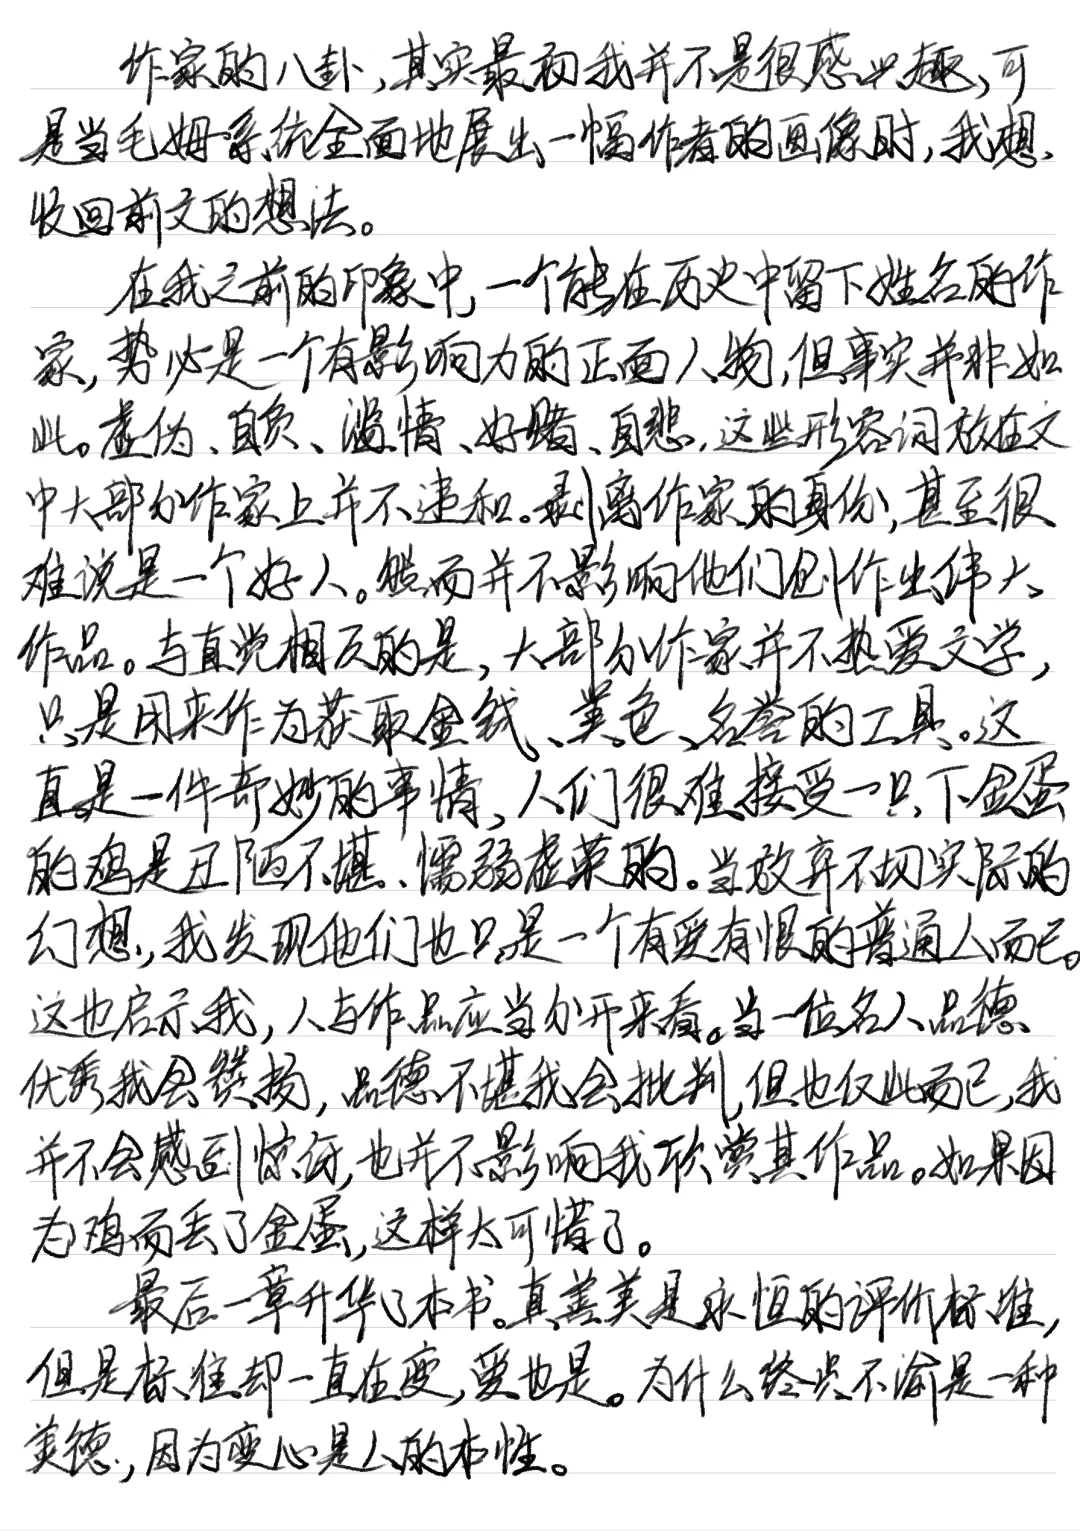 作家的八卦，其实最初我并不是很感兴趣，可
是当毛姆系统全面地展出一幅作者的画像时，我想
收回前文的想法。
在我之前的印象中，一个能在历史中留下姓名的作
家，势必是一个有影响力的正面人物，但事实并非如
此。虚伪、自负、滥情、好赌、自悲，这些形容词放在文
中大部分作家上并不违和。剥离作家的身份，甚至很
难说是一个好人。然而并不影响他们创作出伟大
作品。与直觉相反的是，大部分作家并不热爱文学，
只是用来作为获取金钱、美色、名誉的工具。这
真是一件奇妙的事情，人们很难接受一只下金蛋
的鸡是丑陋不堪、懦弱虚荣的。当放弃不切实际的
幻想，我发现他们也只是一个有爱有恨的普通人而已。
这也启示我，人与作品应当分开来看。当一位名人品德
优秀我会赞扬，品德不堪我会批判，但也仅此而已，我
并不会感到惊讶，也并不影响我欣赏其作品。如果因
为鸡而丢了金蛋，这样太可惜了。
最后一章升华了本书。真善美是永恒的评价标准，
但是标准却一直在变，爱也是。为什么终归不渝是一种
美德，因为变心是人的本性。